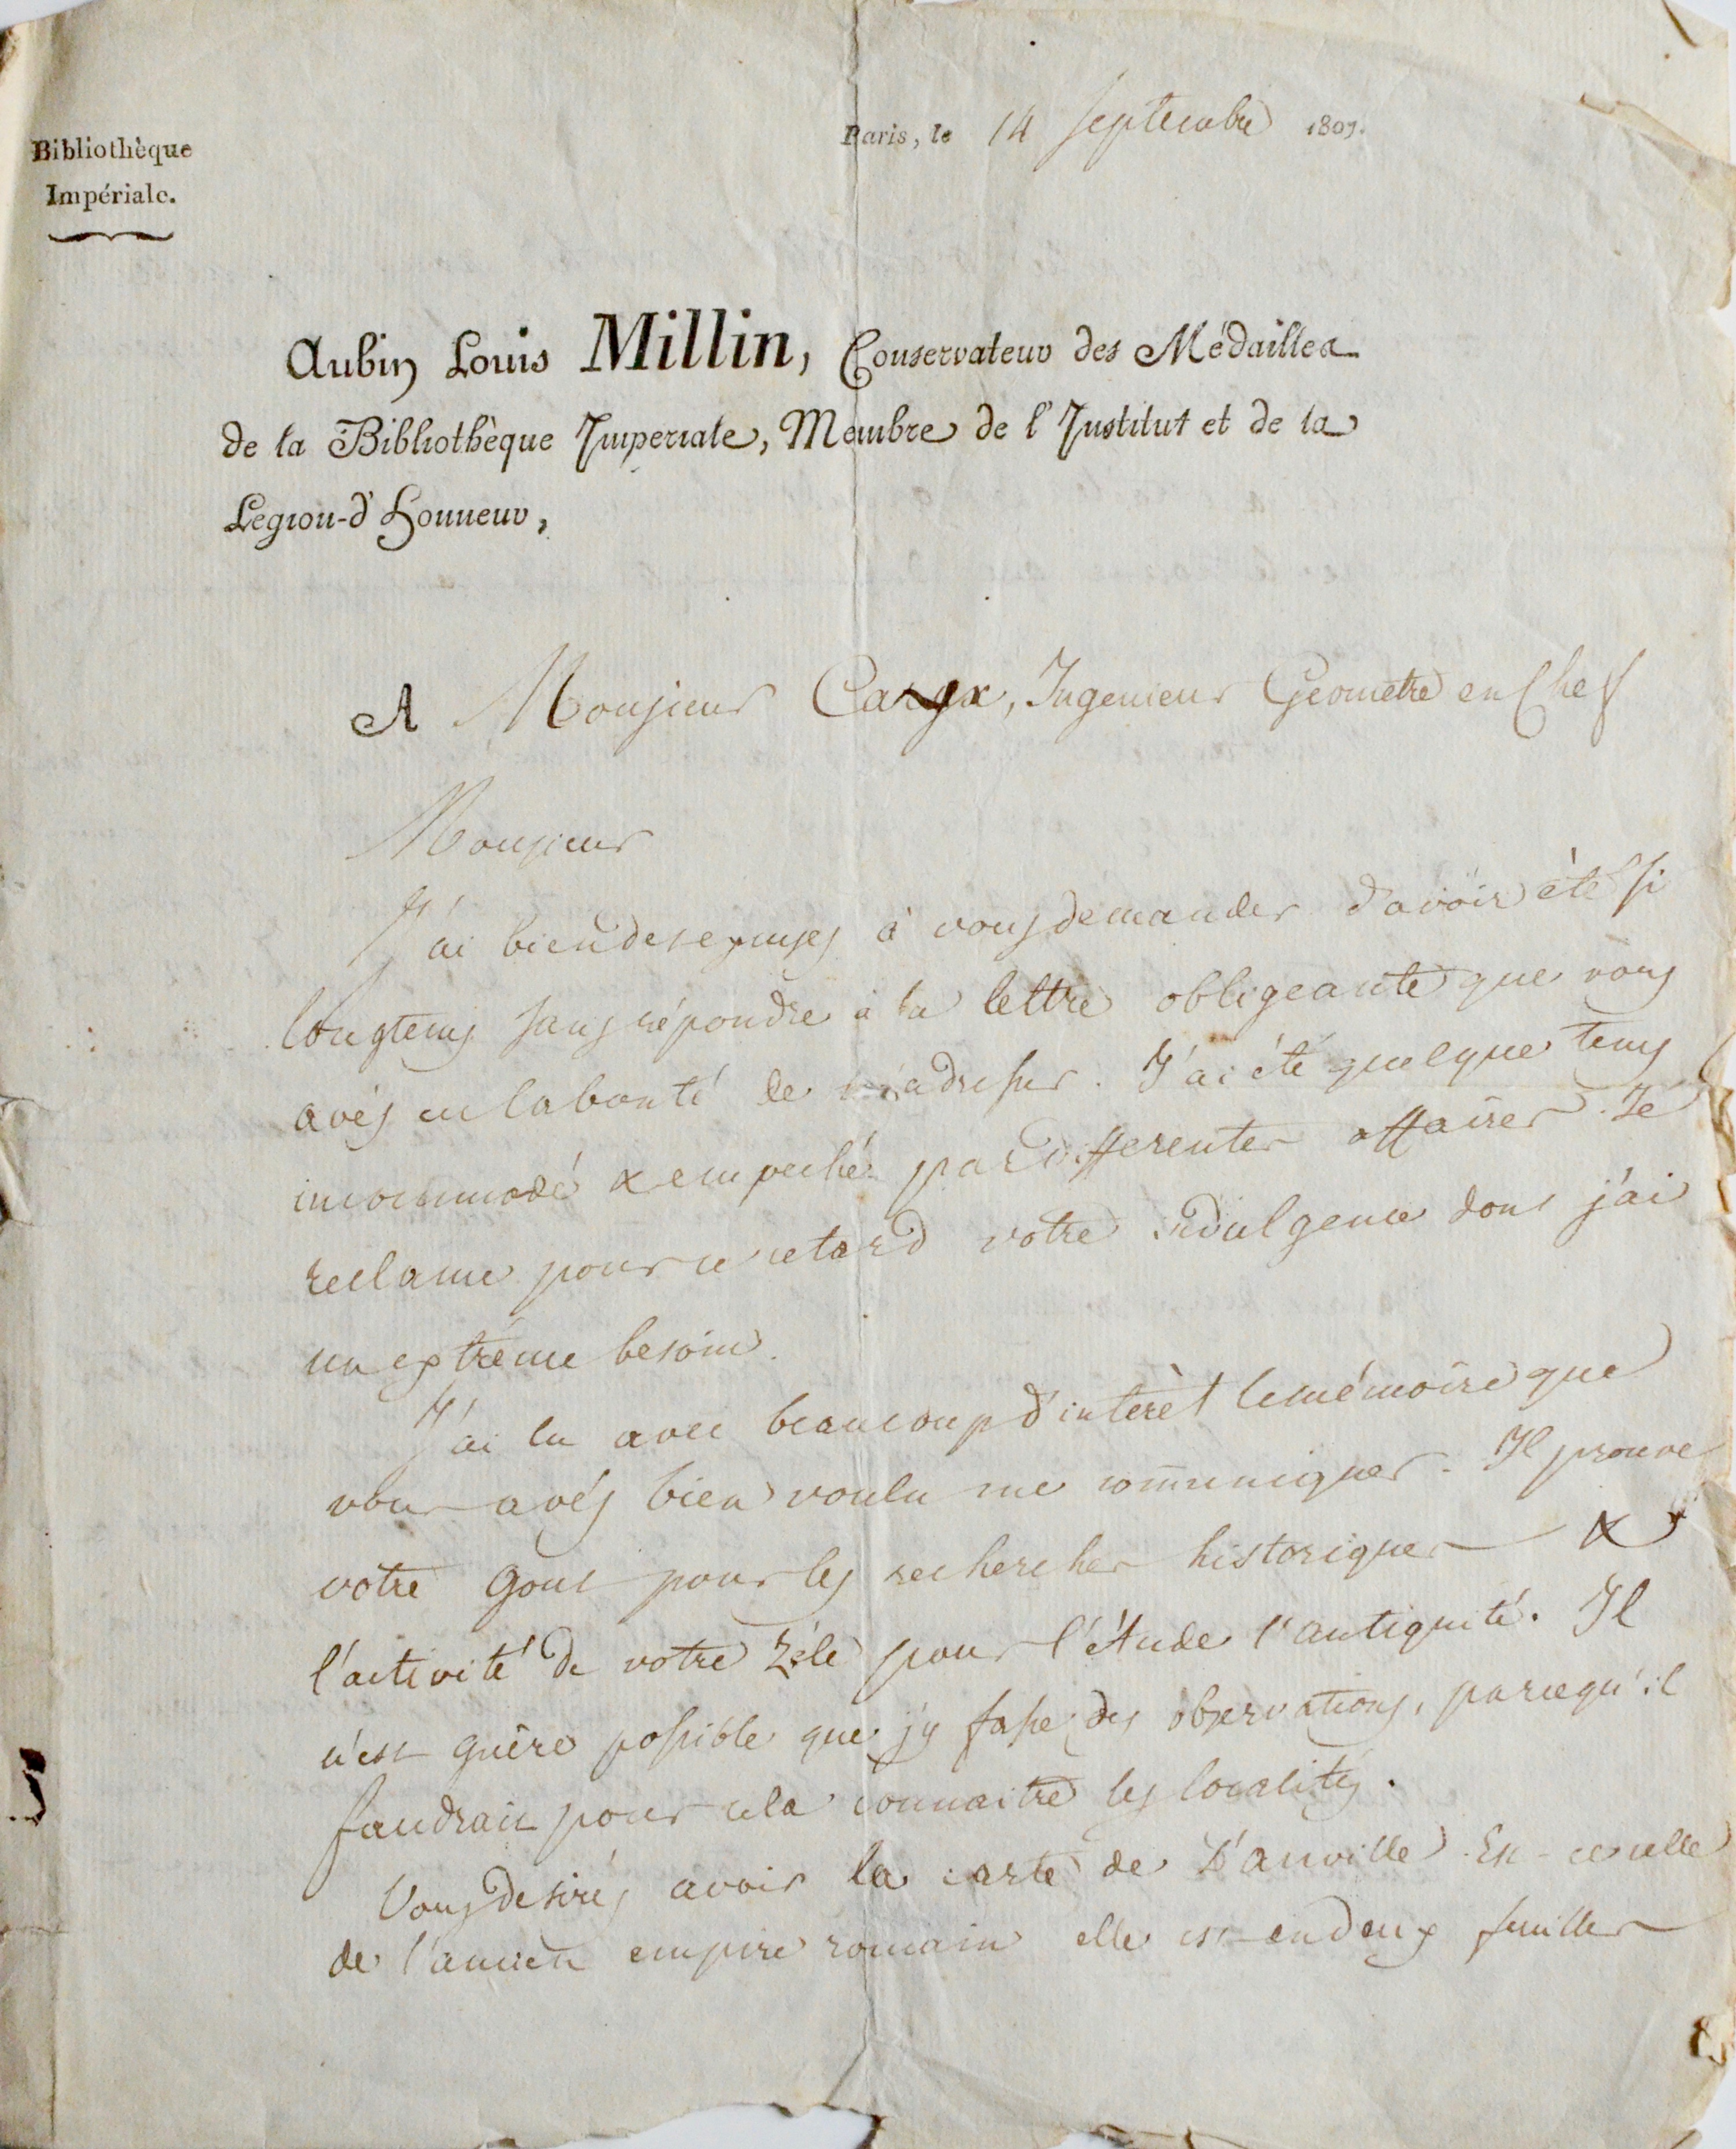 Paris, le 14 septembre 1809.
Bibliothèque
Impériale.
Aubin Louis Millin, Conservateur des Médailles
de la Bibliothèque Imperiale, Membre de l'Institut et de la
Legion-d'Honneur,
A Monsieur , Ingenieur Geometre en Chef
Monsieur
J'ai bien des excuses à vous demander d'avoir été si
longtems sans répondre à la lettre obligeante que vous
avés eu la bonté de m'adresser. J'ai été quelque tems
incommodé & empeché par differentes affaires. Je
reclame pour ce retard votre indulgence dont j'ai
un extrême besoin.
J'ai lu avec beaucoup d'interèt le mémoire que
vous avés bien voulu me communiquer. Il prouve
votre gout pour les recherches historiques &
l'activité de votre zèle pour l'étude l'antiquité. Il
n'est guère possible que j'y fasse des observations, parcequ'il
faudrait pour cela connaitre les localités.
Vous desirés avoir la carte de D'anville. Est-ce celle
de l'ancien empire romain elle est en deux feuilles